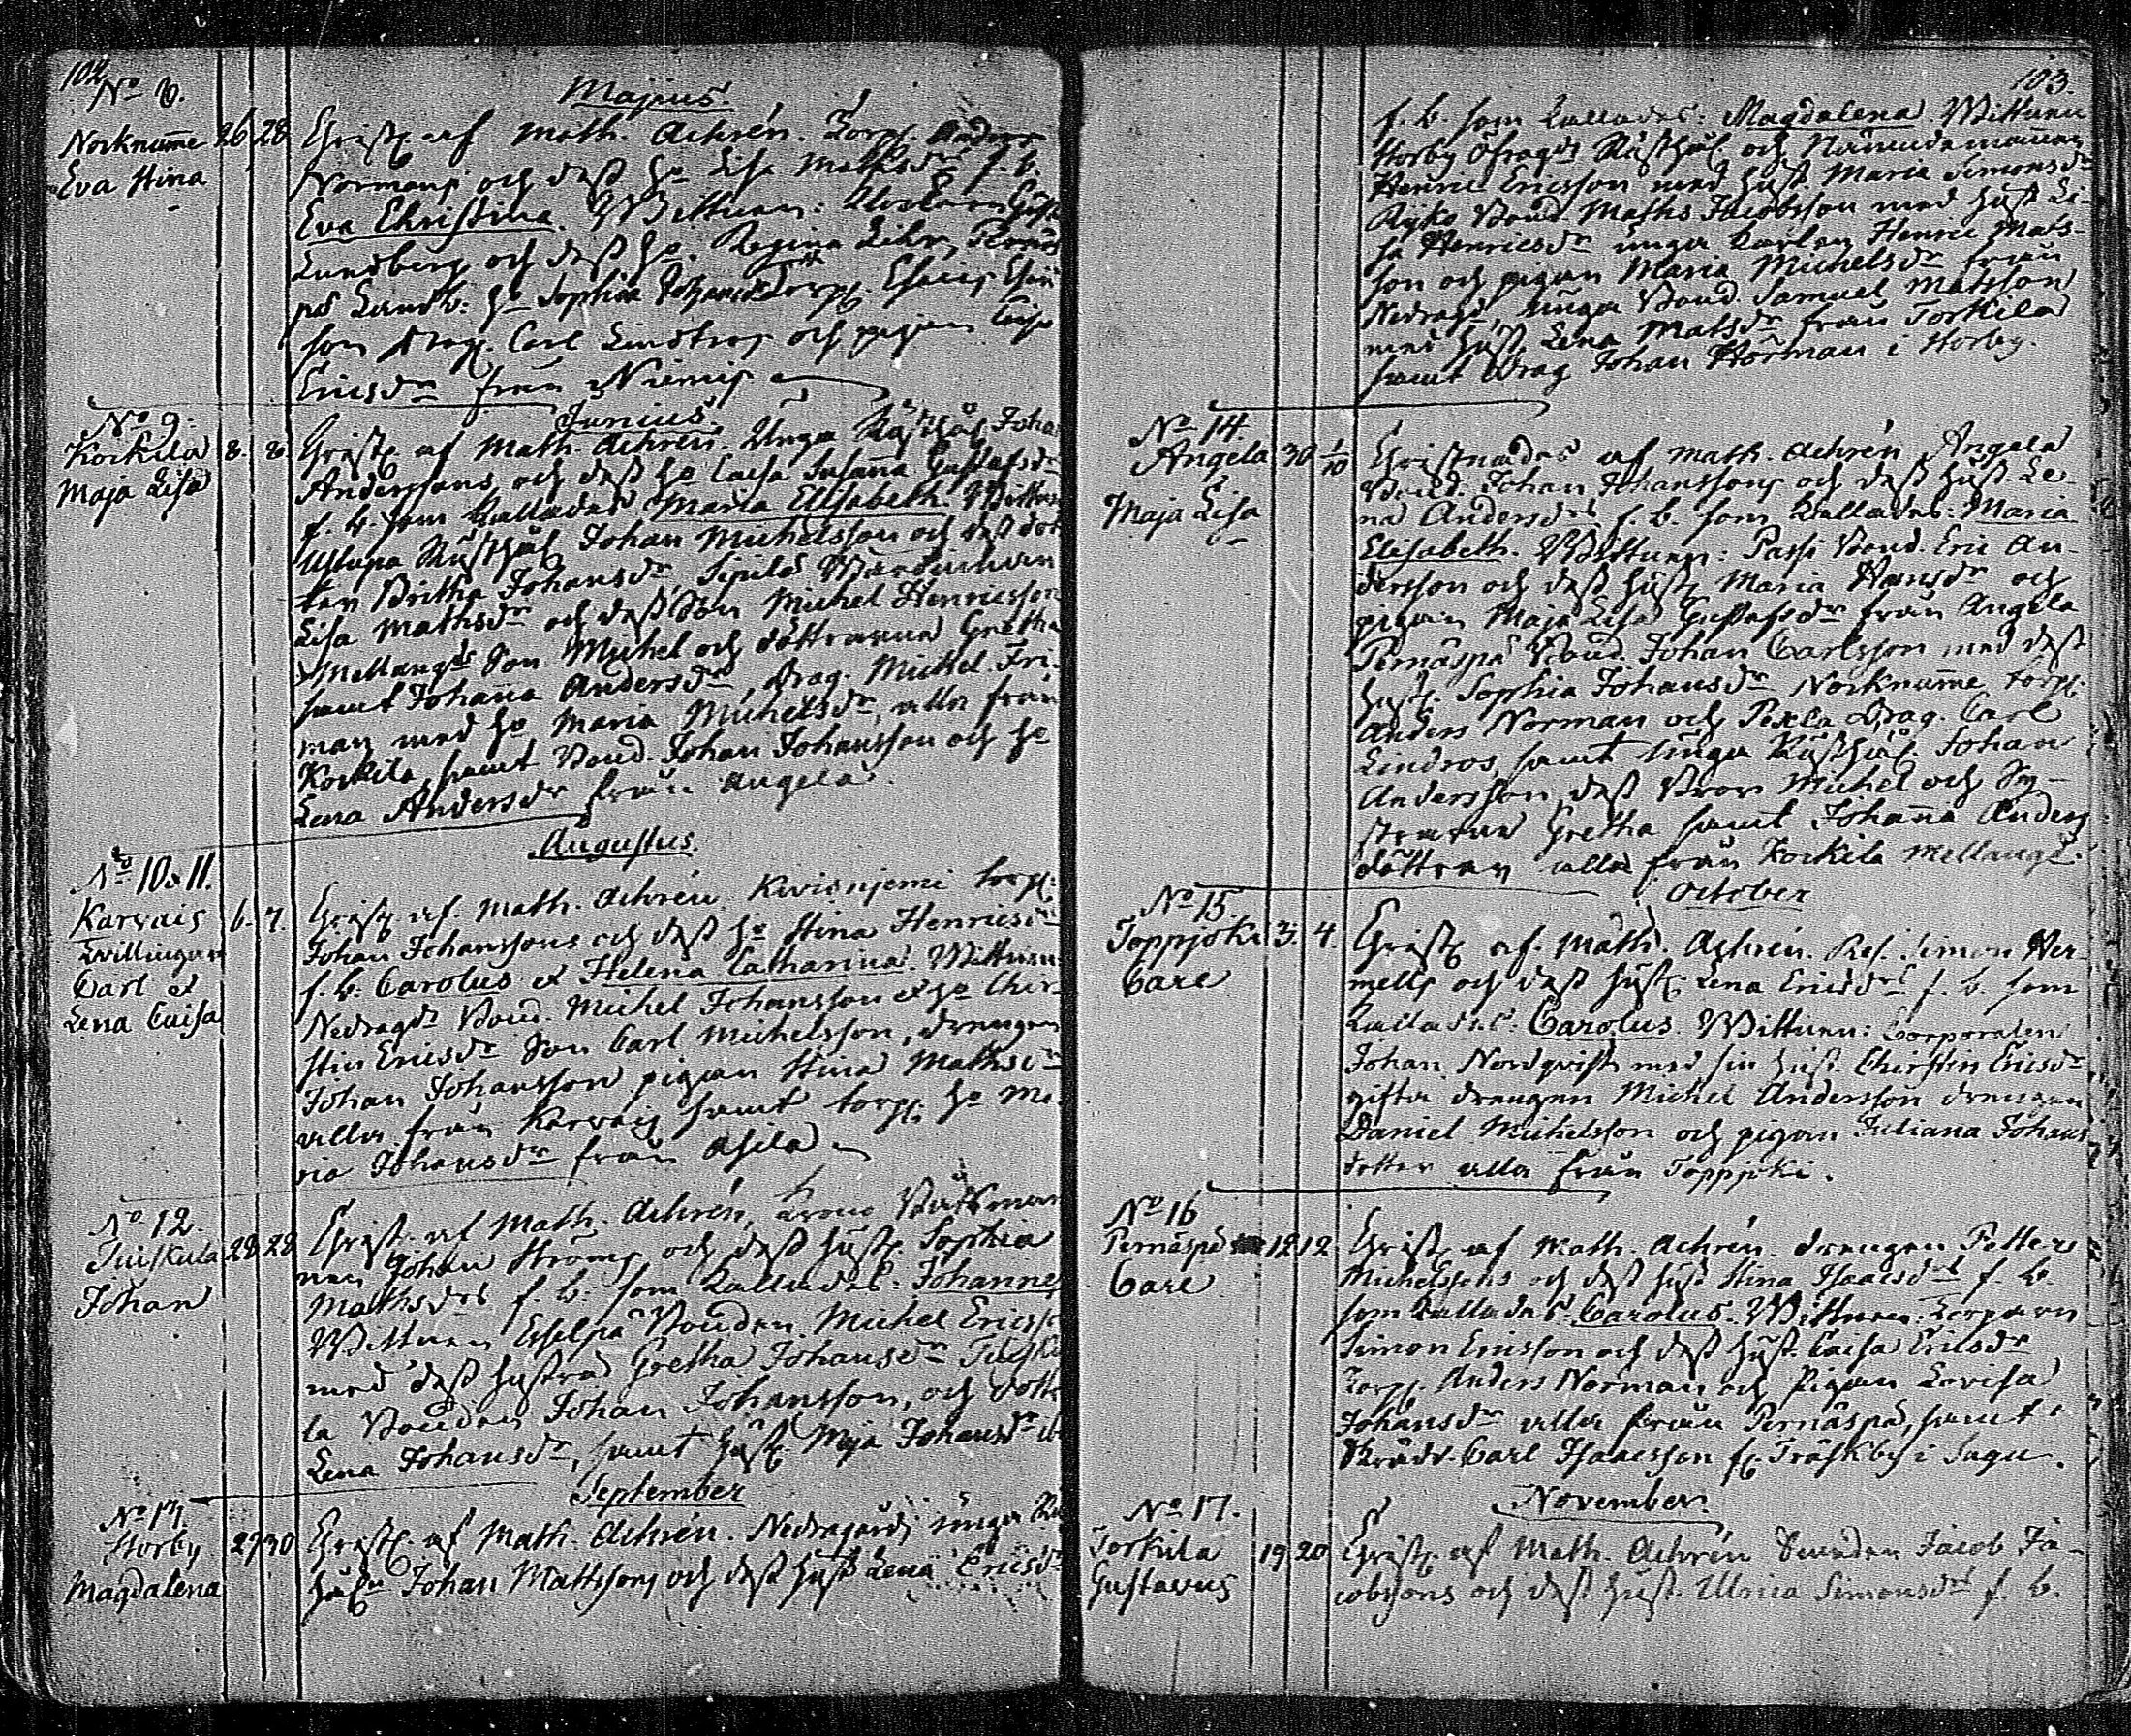 102
No 8.
Majus.
Norknumme 26 28 Christ. af Math. Achrén. Torp. Anders
Eva Stina Normans och dess h:o Lisa Mathsdr f. b.
Eva Christina. Wittnen:
Lundberg och dess h:o Regina Lihr, Pernäs
på Landb: h:o Sophia Johansdr Torp.
son Drag. Carl Lindros och pigan Caisa
Ericsdr från Niemis
No 9.
Junius
Korkila 8. 8. Christ. af Math. Achrén. Unga Rusthål. Johan
Maja Lisa Anderssons och dess h:o Caisa Susanna Gustafsdr
f. b. som kallades Maria Elisabeth. Wittnen
Ustupa Rusthål. Johan Michelsson och dess dot
ter Britha Johansdr, Sipilä Wärdinnan
Lisa Mathsdr och dess Son Michel Henricsson
Mellangds Son Michel och döttrarna Gretha
samt Johanna Andersdr, Drag. Michel Fri-
man med h:o Maria Michelsdr, alla från
Korkila, samt Bond. Johan Johansson och h:o
Lena Andersdr från Angela.
Augustus.
No 10 & 11.
Karvais 6. 7. Christ. af Math. Achrén Kivisnjemi torp:
Tvillingar Johan Johanssons och dess h:o Stina Henricsdrs
Carl et f. b. Carolus et Helena Catharina. Wittnen
Lena Caisa Nedragds Bond. Michel Johansson et h:o Chir-
stin Ericsdr Son Carl Michelsson, drengen
Johan Johansson pigan Stina Mathsdr
alla från Karvais samt torp. h:o Ma
ria Johansdr från Asila
No 12.
Tuiskula 28 28 Christ. af Math. Achrén, Krono Båtsman
Johan nen Johan Ströms och dess hust. Sophia
Mathsdrs f. b. som kallades: Johannes
Wittnen Esselpä Bonden Michel Ericss
med dess hustru Gretha Johansdr Tuisku
la Bonden Johan Johansson, och dott
Lena Johansdr, samt hust. Maja Johansdr ib
September
No 13.
Storby 27 30 Christ. af Math. Achrén. Nedragårds unga Ru
Magdalena hål:n Johan Mattssons och dess hust Lena Ericsdr
103.
f. b. som kallades: Magdalena Wittnen
Storby Öfragds Rusthål och Nämndemannen
Henric Ericsson med hust. Maria Simonsdr
Äijkö Bond. Maths Jacobsson med hust Li-
sa Henricsdr unga Karlen Henric Mats-
son och pigan Maria Michelsdr från
Nedragd, unga Bond. Samuel Matsson
med hust Lena Matsdr från Torkila
samt Drag Johan Hörman i Storby.
No 14.
Angela 30 1/10 Christnades af Math. Achrén Angela
Maja Lisa Bond. Johan Johanssons och dess hust. Le-
na Andersdrs f. b. som kallades: Maria
Elisabeth. Wittnen: Passi Bond. Eric An-
dersson och dess hust Maria Hansdr och
pigan Maja Lisa Gustafsdr från Angela
Pernäspä Bond. Johan Carlsson med dess
hust. Sophia Johansdr Norknumme torp.
Anders Norman och Pixla Drag. Carl
Lindros, samt unga Rusthål. Johan
Andersson, dess Bror Michel och Sy-
strarna Gretha samt Johanna Anders
döttrar alla från Korkila Mellangd.
October
No 15.
Toppjoki 3. 4. Christ af. Math. Achrén. Res. Simon Her-
Carl mells och dess hust. Lena Ericsdrs f. b. som
kallades: Carolus. Wittnen: Corporalen
Johan Nordqvist med sin hust. Chirstin Ericsdr
gifta drengen Michel Andersson drengen
Daniel Michelsson och pigan Juliana Johans
dotter alla från Toppjoki.
No 16
Pernäspä 12 12 Christ af Math. Achrén. drengen Petters
Carl Michelssons och dess hust Stina Isaacsdrs f. b.
som kallades Carolus. Wittnen: Torparen
Simon Ericsson och dess hust. Caisa Ericsdr
Torp. Anders Norman och Pigan Lovisa
Johansdr alla från Pernäspä, samt
Carl Isaacsson f. Träskby i Sagu.
November.
No 17.
Torkila 19 20 Christ. af Math. Achrén Bonden Jacob Ja-
Gustavus cobssons och dess hust. Ulrica Simonsdrs f. b.